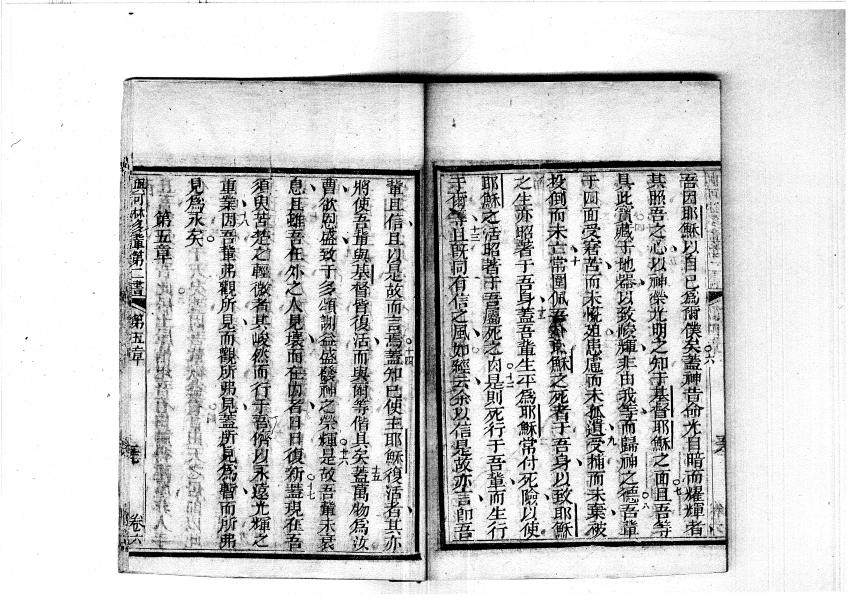 吾因耶穌以自已為爾僕矣蓋神昔命光自暗而耀輝者
其照吾之心以神榮光明之知于基督耶穌之面且吾等
具此寶藏于地器以致峻輝非由我等而歸神之德吾輩
于四面受窘苦而未慌 患慮而未孤遺受捕而未棄被
投倒而未亡常圍佩吾 耶穌之死者于吾身以致耶穌
之生亦昭著于吾身蓋吾輩生平為耶穌常付死險以使
耶穌之活昭著于吾屬死之肉是則死行于吾輩而生行
于爾等且既同有信之風如經云余以信是故亦言即吾
輩且信且以是故而言焉蓋知已使主耶穌復活者其亦
將使吾輩與基督皆復活而與爾等偕具矣蓋萬物為汝
曹欲恩盛致于多頌謝益盛發神之榮輝是故吾輩未衰
息且雖吾在外之人見壞而在内者日日復新蓋現在吾
須臾苦楚之輕微者其峻然而行于吾儕以永遠光輝之
重業因吾輩弗觀所見而觀所弗見蓋所見為暫而所弗
見為永矣
第五章
與可林多輩第二書
第五章
卷六